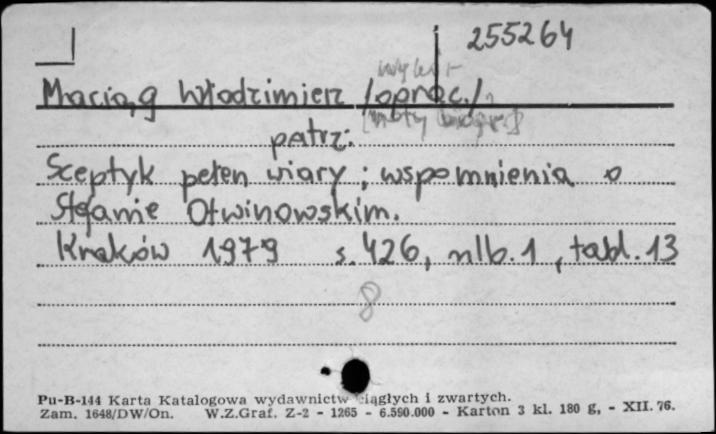 255264
wybór
Maciąg Włodzimierz /oprac./
patrz:
Sceptyk pełen wiary ; wspomnienia o
Stefanie Otwinowskim.
Kraków 1979 s. 426, nlb. 1, tabl. 13
8
Pu-B-144 Karta Katalogowa wydawnictw ciągłych i zwartych.
Zam. 1648/DW/On. W.Z.Graf. Z-2 - 1265 - 6.590.000 - Karton 3 kl. 180 g, - XII. 76.